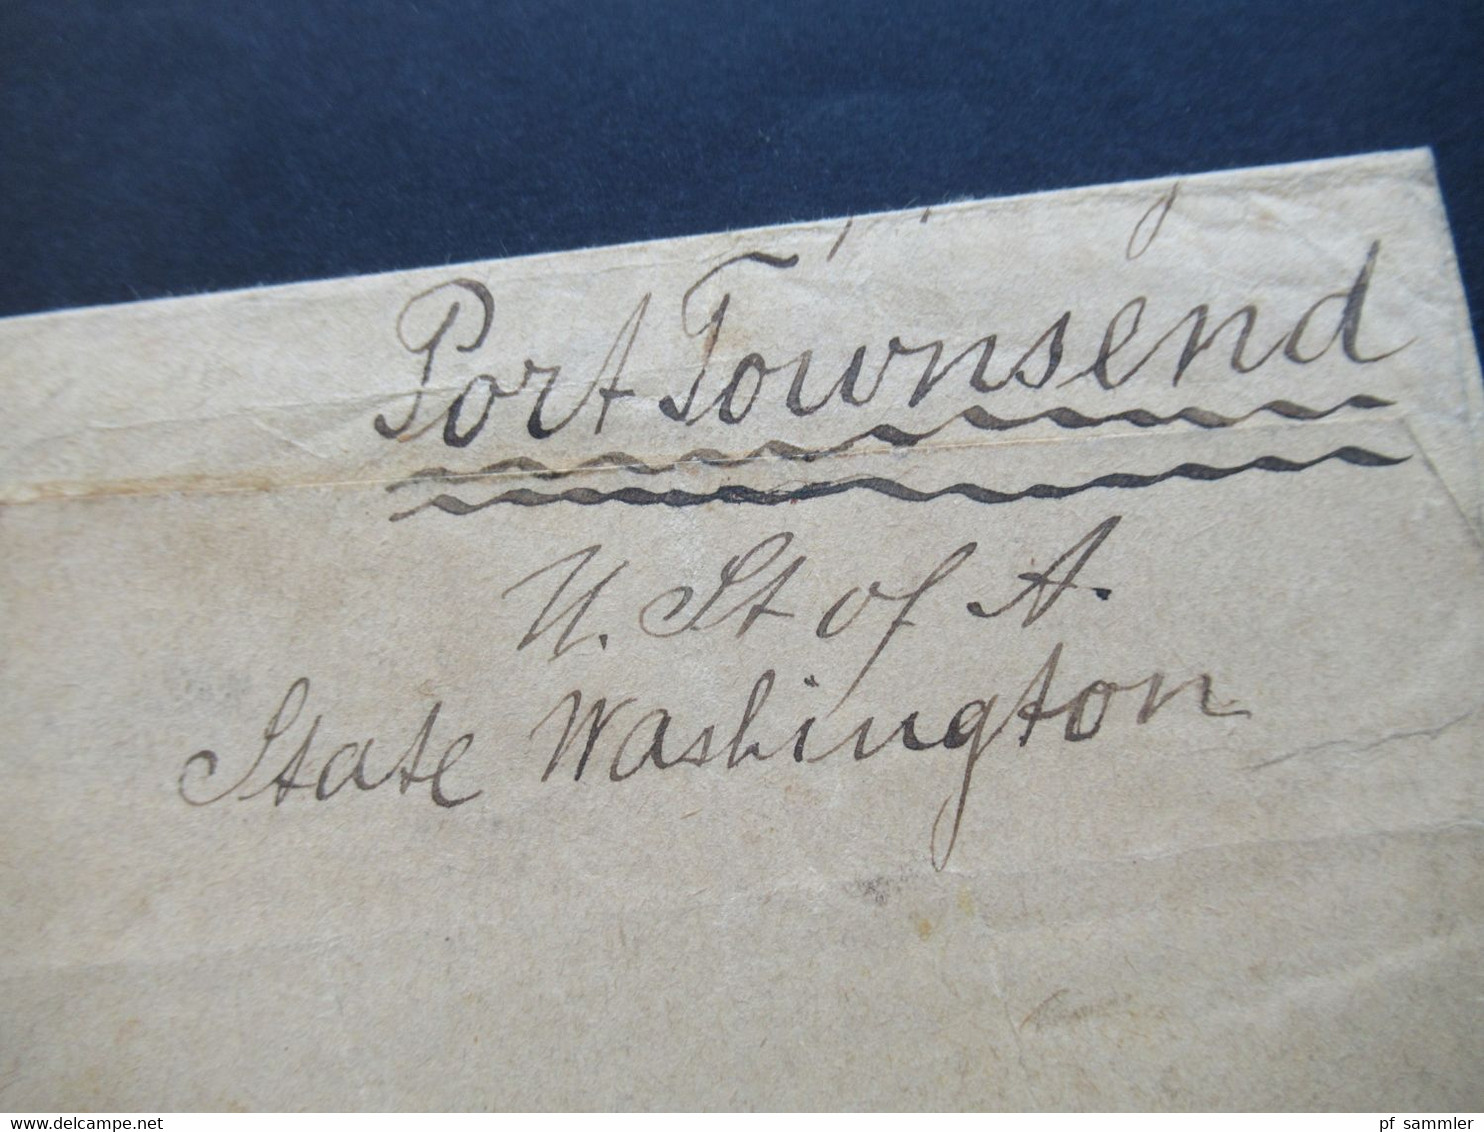 Port Townsend
U. St of A.
State Washington
www.delcampe.net
pf sammler